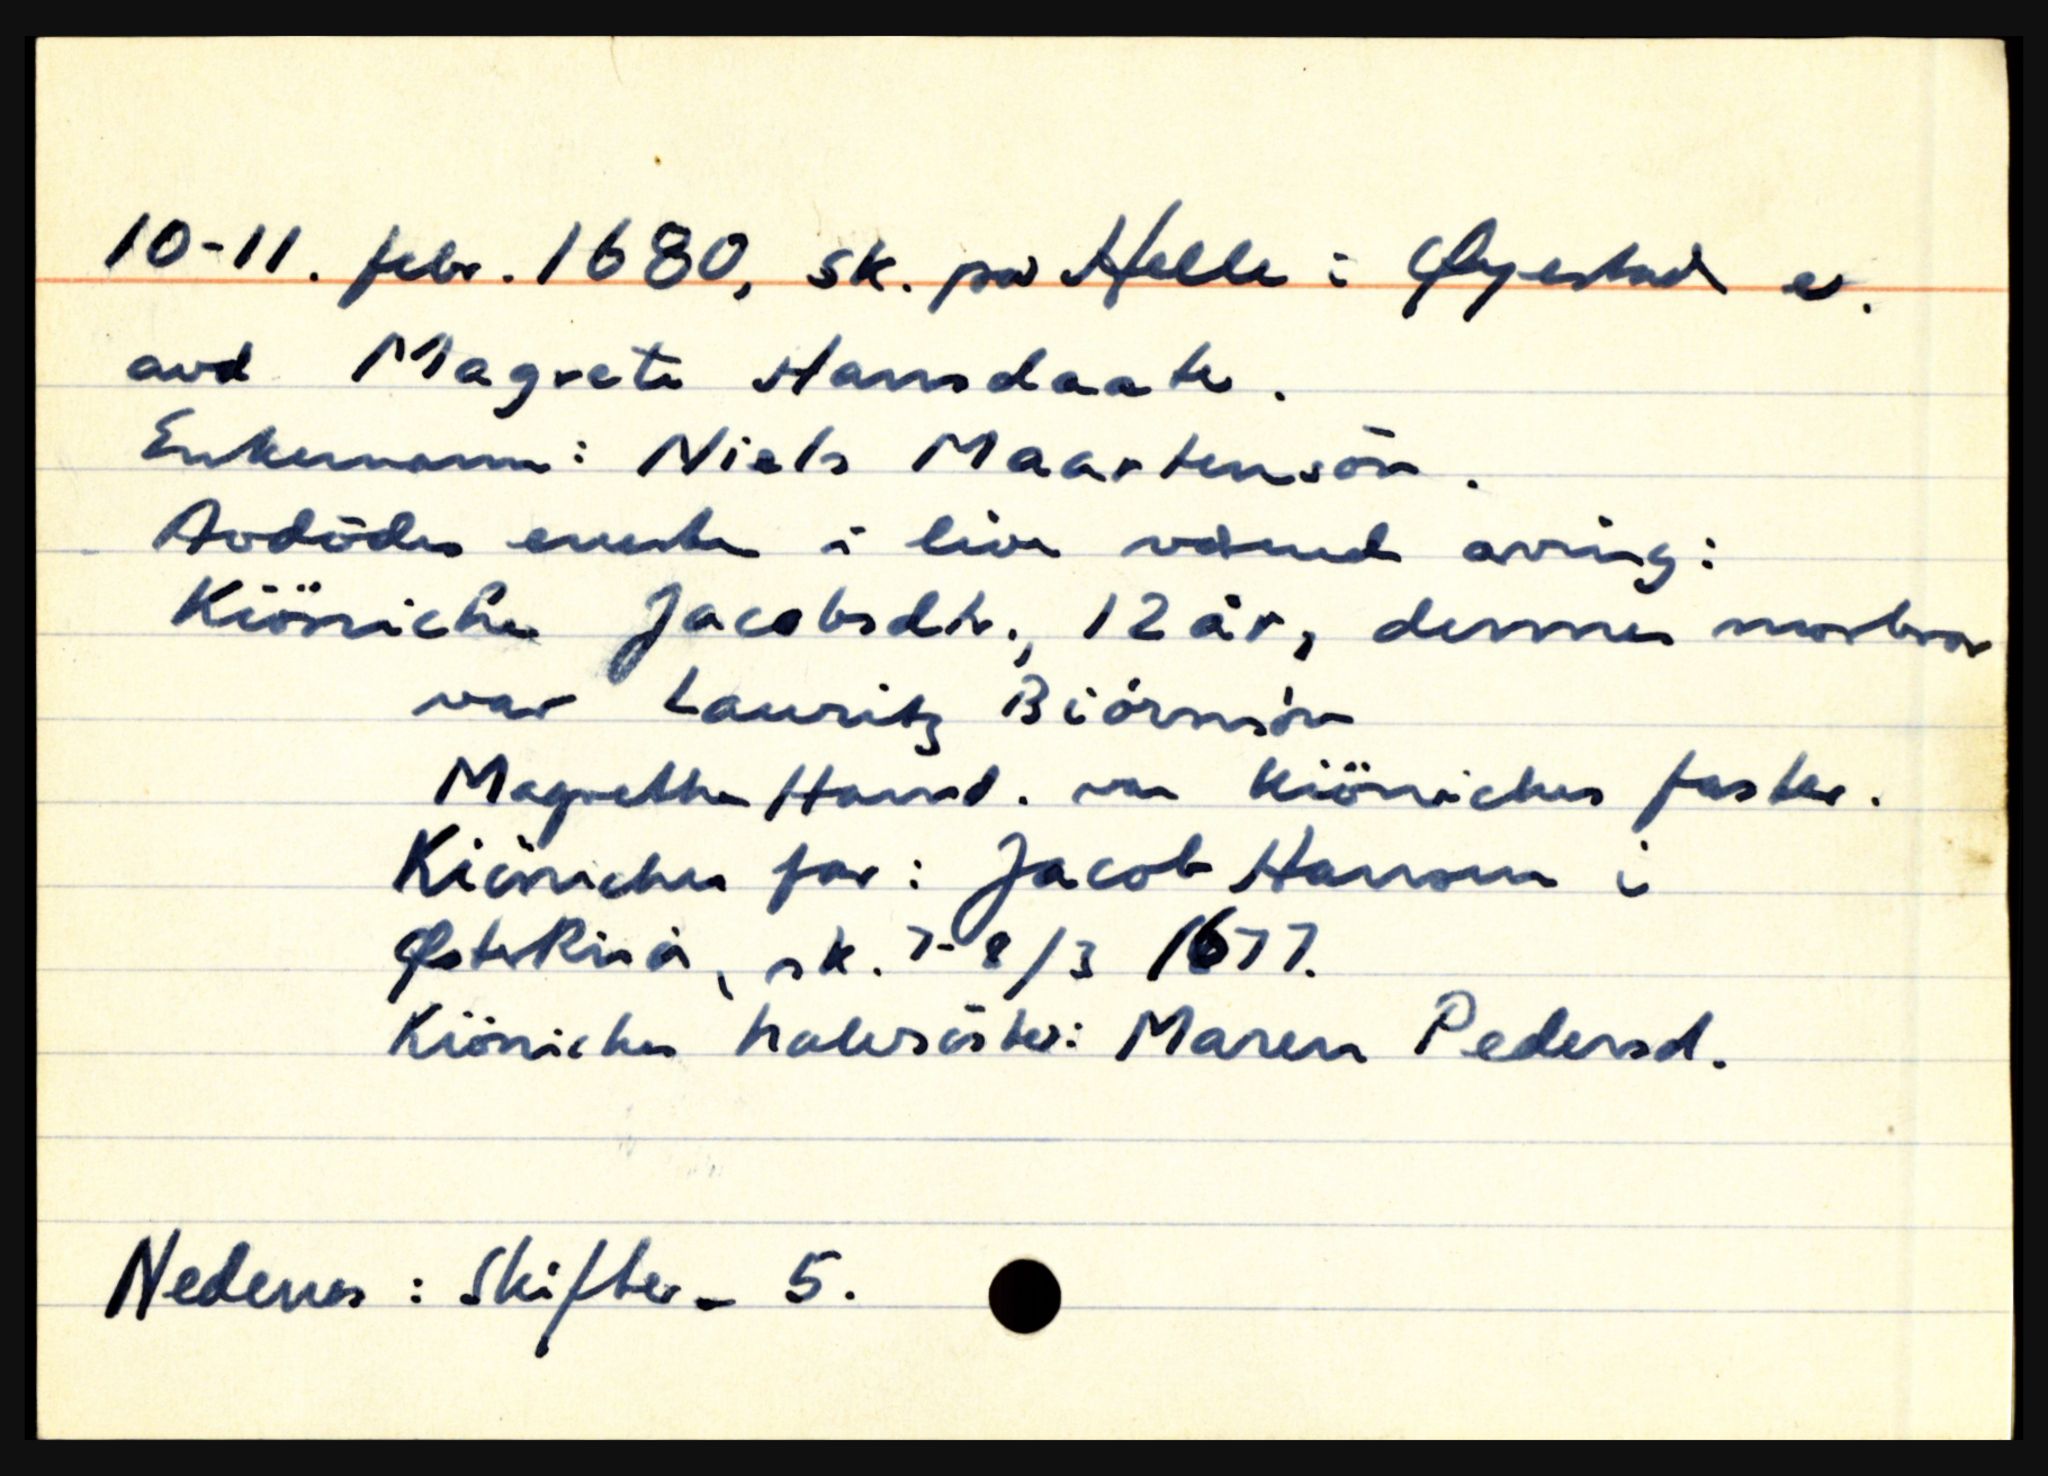 10-11. febr. 1680, sk. på Helle i Øyestad e.
avd Magrete Hansdaater.
Enkemann: Niels Maartensön.
Avdödes eneste i live værende arving:
Kiöniche Jacobsdtr., 12 år, dennes morbror
var Lauritz Biörnsön
Magrethe Hansd. var Kiöniches faster.
Kiöniches far: Jacob Hansen i
ØsteRisör, sk. 7-8/3 1677.
Kiöniches halvsöster: Maren Pedersd.
Nedenes: Skifter - 5.